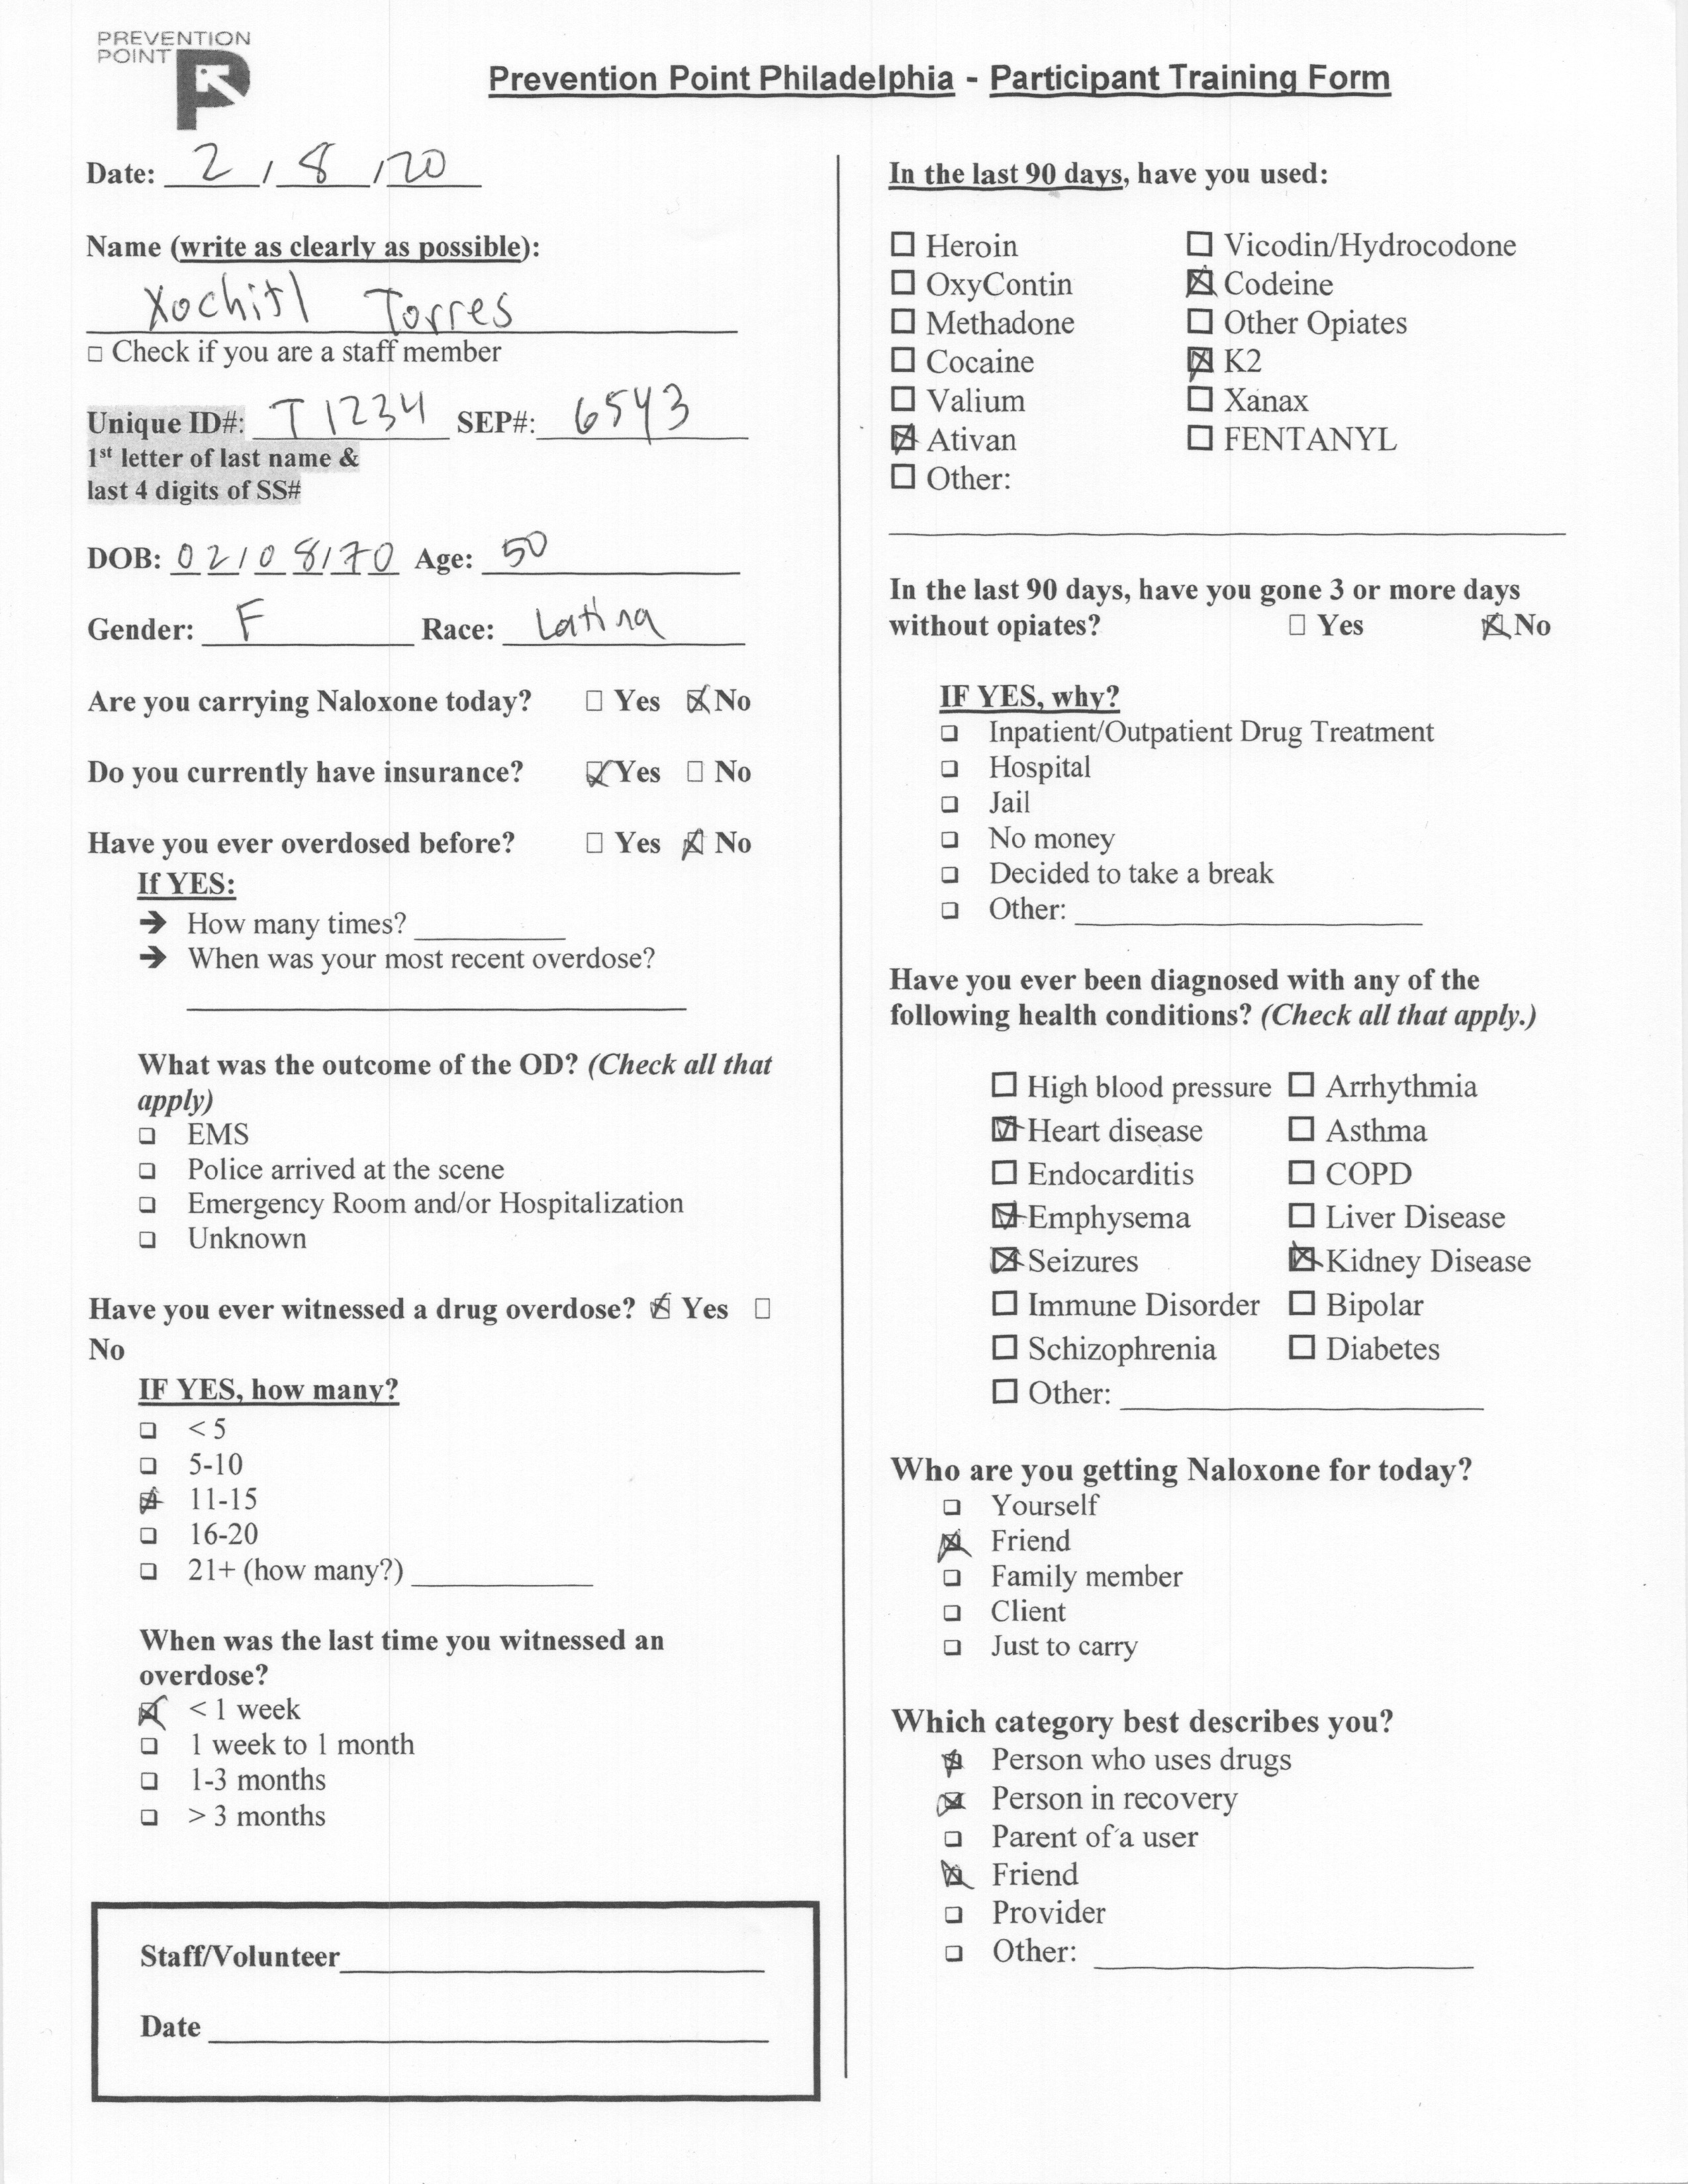 PREVENTION
POINT
Prevention Point Philadelphia - Participant Training Form
Date: 2 / 8 / 20
Name (write as clearly as possible):
Xochitl Torres
☐ Check if you are a staff member
Unique ID#: T1234 SEP#: 6543
1st letter of last name &
last 4 digits of SS#
DOB: 02/08/70 Age: 50
Gender: F Race: Latina
Are you carrying Naloxone today? ☐ Yes ☒ No
Do you currently have insurance? ☒ Yes ☐ No
Have you ever overdosed before? ☐ Yes ☒ No
If YES:
➔ How many times?
➔ When was your most recent overdose?
What was the outcome of the OD? (Check all that
apply)
☐ EMS
☐ Police arrived at the scene
☐ Emergency Room and/or Hospitalization
☐ Unknown
Have you ever witnessed a drug overdose? ☒ Yes ☐
No
IF YES, how many?
☐ < 5
☐ 5-10
☒ 11-15
☐ 16-20
☐ 21+ (how many?)
When was the last time you witnessed an
overdose?
☒ < 1 week
☐ 1 week to 1 month
☐ 1-3 months
☐ > 3 months
Staff/Volunteer
Date
In the last 90 days, have you used:
☐ Heroin ☐ Vicodin/Hydrocodone
☐ OxyContin ☒ Codeine
☐ Methadone ☐ Other Opiates
☐ Cocaine ☒ K2
☐ Valium ☐ Xanax
☒ Ativan ☐ FENTANYL
☐ Other:
In the last 90 days, have you gone 3 or more days
without opiates? ☐ Yes ☒ No
IF YES, why?
☐ Inpatient/Outpatient Drug Treatment
☐ Hospital
☐ Jail
☐ No money
☐ Decided to take a break
☐ Other:
Have you ever been diagnosed with any of the
following health conditions? (Check all that apply.)
☐ High blood pressure ☐ Arrhythmia
☒ Heart disease ☐ Asthma
☐ Endocarditis ☐ COPD
☒ Emphysema ☐ Liver Disease
☒ Seizures ☒ Kidney Disease
☐ Immune Disorder ☐ Bipolar
☐ Schizophrenia ☐ Diabetes
☐ Other:
Who are you getting Naloxone for today?
☐ Yourself
☒ Friend
☐ Family member
☐ Client
☐ Just to carry
Which category best describes you?
☒ Person who uses drugs
☒ Person in recovery
☐ Parent of a user
☒ Friend
☐ Provider
☐ Other: